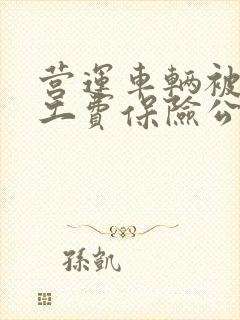 营運車輛被
工費保險公
孫凱